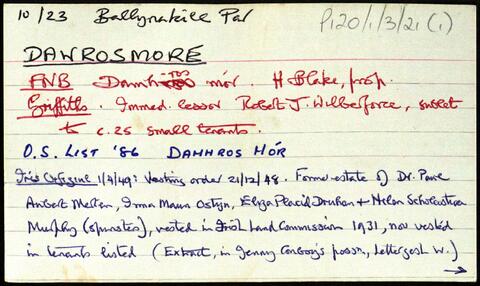 10/23 Ballynakill Par P120/1/3/21 (1)
DAWROSMORE
FNB Damhros mór. H Blake, prop.
Griffiths. Immed. lessor Robert J. Wilberforce, sublet
to c.25 small tenants.
O.S. LIST '86 DAMHROS MÓR
Iris Oifigiúil 1/4/49: Vesting order 21/12/48. Former estate of Dr.
Aubert Irma Maria Ostyn, Eliza Placid &
Murphy (spinsters), vested in Irish Land Commission 1931, now vested
in tenants listed (Extract, in Jenny Conboy's possn, Letterjosh W.)